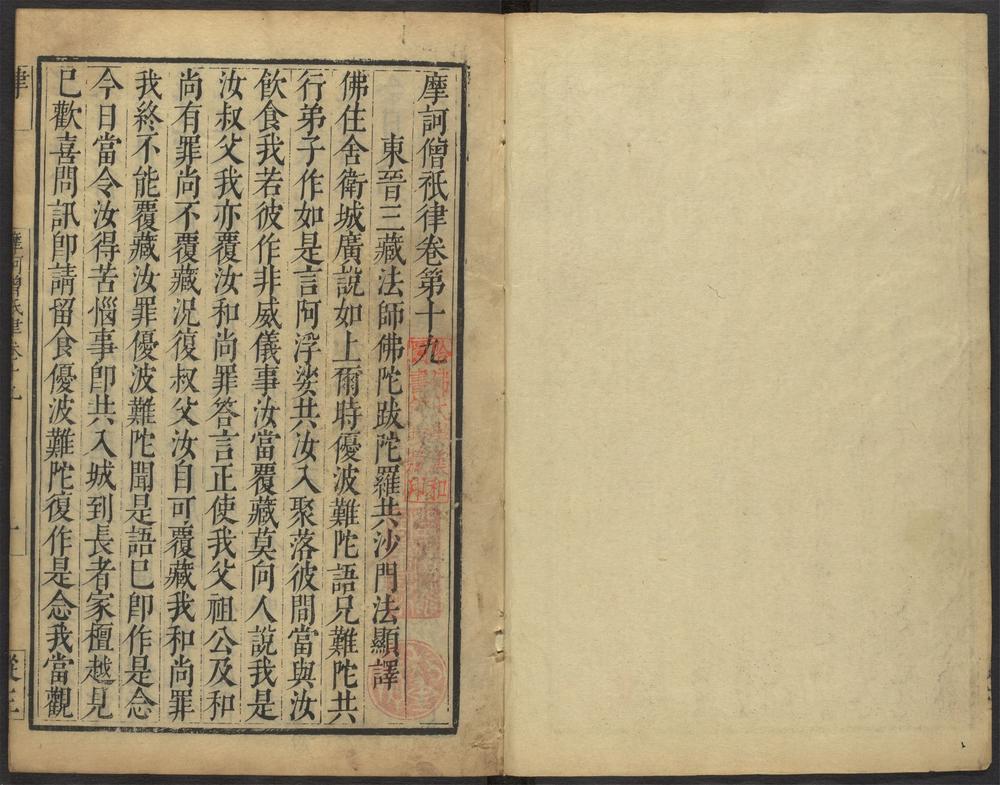 摩訶僧祇律卷第十九
東晉三藏法師佛陀跋陀羅共沙門法顯譯
佛住舍衛城廣說如上爾時優波難陀語兄難陀共
行弟子作如是言阿浮娑共汝入聚落彼間當與汝
飲食我若彼作非威儀事汝當覆藏莫向人說我是
汝叔父我亦覆汝和尚罪答言正使我父祖公及和
尚有罪尚不覆藏況復叔父汝自可覆藏我和尚罪
我終不能覆藏汝罪優波難陀聞是語已卽作是念
今日當令汝得苦惱事卽共入城到長者家檀越見
已歡喜問訊卽請留食優波難陀復作是念我當觀
律
摩訶僧祇律卷十九
一